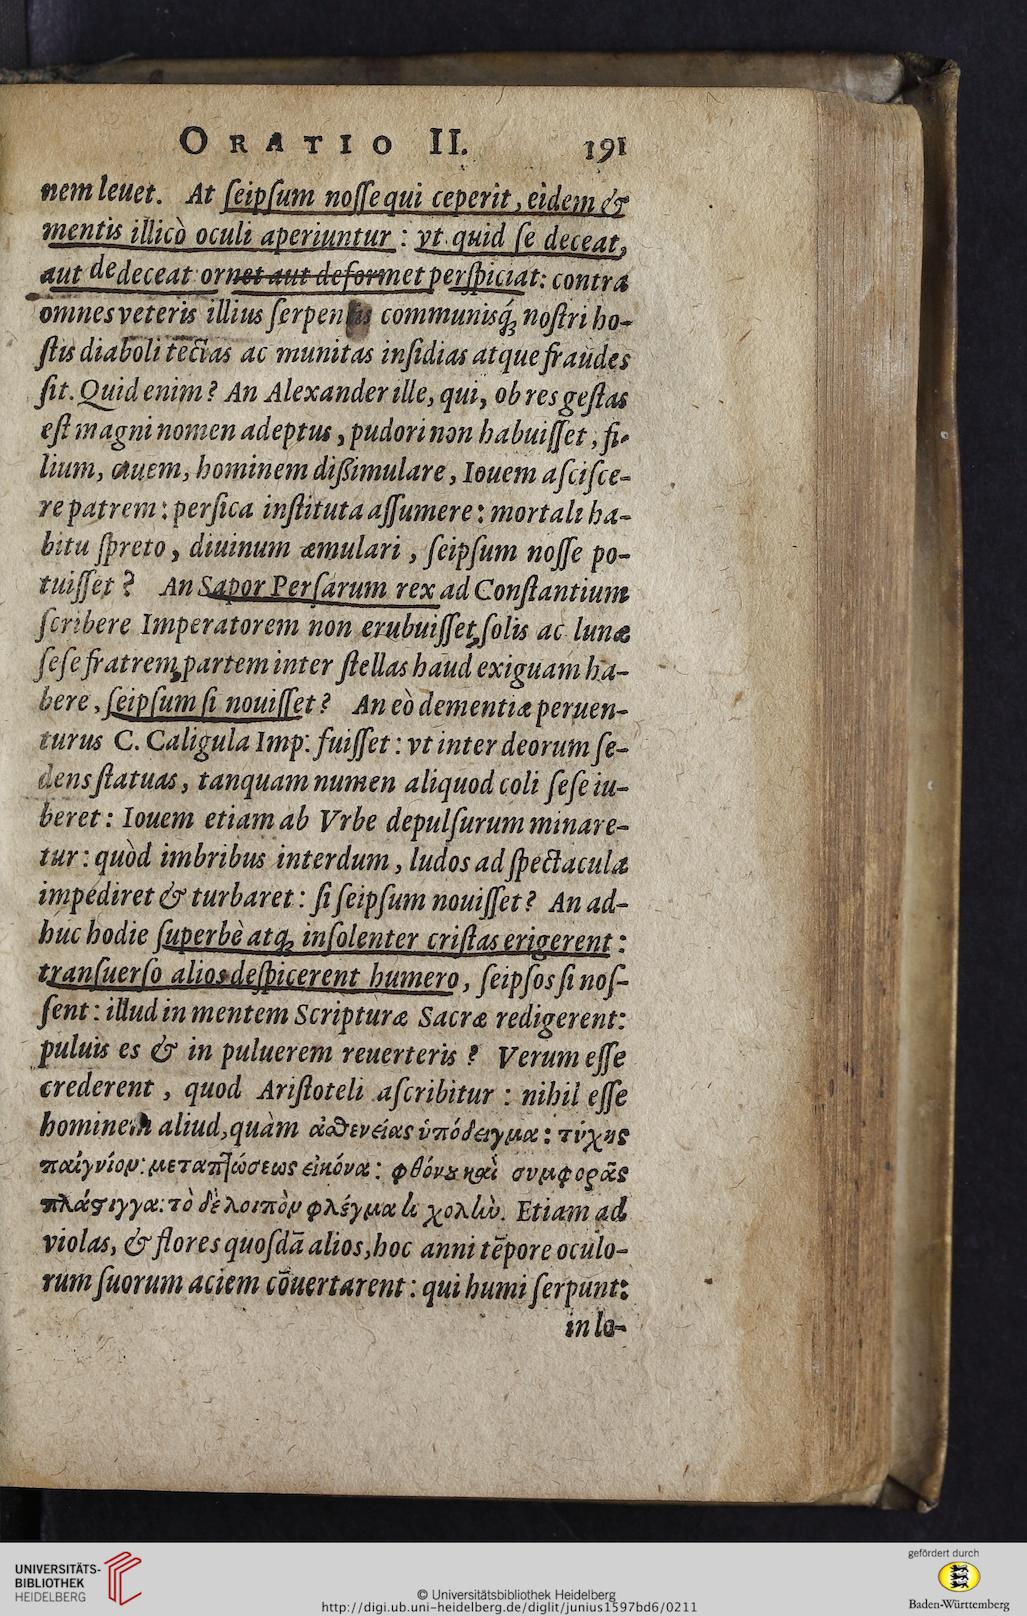 ORATIO II. 191
nem leuet. At ſeipſum noſſe qui ceperit, eidem &
mentis illicò oculi aperiuntur : vt quid ſe deceat,
aut dedeceat ornet aut deformet perſpiciat: contra
omnes veteris illius ſerpentis communisq́; noſtri ho-
ſtis diaboli tectas ac munitas inſidias atque fraudes
ſit. Quid enim? An Alexander ille, qui, ob res geſtas
eſt magni nomen adeptus, pudori non habuiſſet, fi-
lium, auem, hominem dißimulare, Iouem aſciſce-
re patrem: perſica inſtituta aſſumere: mortali ha-
bitu ſpreto, diuinum æmulari, ſeipſum noſſe po-
tuiſſet? An Sapor Perſarum rex ad Conſtantium
ſcribere Imperatorem non erubuiſſet, ſolis ac lunæ
ſeſe fratrem, partem inter ſtellas haud exiguam ha-
bere, ſeipſum ſi nouiſſet? An eò dementiæ peruen-
turus C. Caligula Imp: fuiſſet: vt inter deorum ſe-
dens ſtatuas, tanquam numen aliquod coli ſeſe iu-
beret: Iouem etiam ab Vrbe depulſurum minare-
tur: quòd imbribus interdum, ludos ad ſpectacula
impediret & turbaret: ſi ſeipſum nouiſſet? An ad-
huc hodie ſuperbè atq; inſolenter criſtas erigerent:
tranſuerſo alios deſpicerent humero, ſeipſos ſi noſ-
ſent: illud in mentem Scripturæ Sacræ redigerent:
puluis es & in puluerem reuerteris? Verum eſſe
crederent, quod Ariſtoteli aſcribitur: nihil eſſe
hominem aliud, quàm ἀσθενείας ὑπόδειγμα: τύχης
παίγνίον: μεταπτώσεως εἰκόνα: φθόνου καὶ συμφορᾶς
πλάστιγγα: τὸ δὲ λοιπὸν φλέγμα καὶ χολὴν. Etiam ad
violas, & flores quoſdā alios, hoc anni tēpore oculo-
rum ſuorum aciem cōuertarent: qui humi ſerpunt:
in lo-
UNIVERSITÄTS-
BIBLIOTHEK
HEIDELBERG
© Universitätsbibliothek Heidelberg
http://digi.ub.uni-heidelberg.de/diglit/junius1597bd6/0211
gefördert durch
Baden-Württemberg